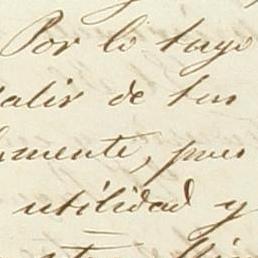 Por lo tuyo
salir de tus
mente, pues
utilidad y